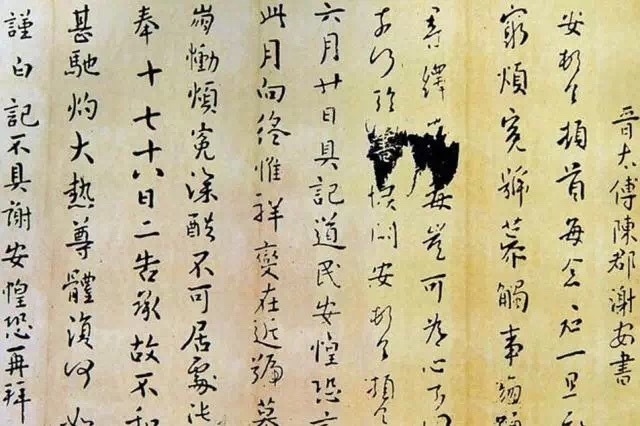 晉太傅陳郡謝安書
安頓首頓首每念君一旦知
窮煩冤號慕觸事崩踊
尋繹毒豈可為心奈何
奈何臨書安頓首頓首
六月廿日具記道民安惶恐言
此月向終惟祥變在近號慕
崩慟煩冤深酷不可居處比
奉十七十六日二告承故不和
甚馳灼大熱尊體復何如
謹白記不具謝安惶恐再拜